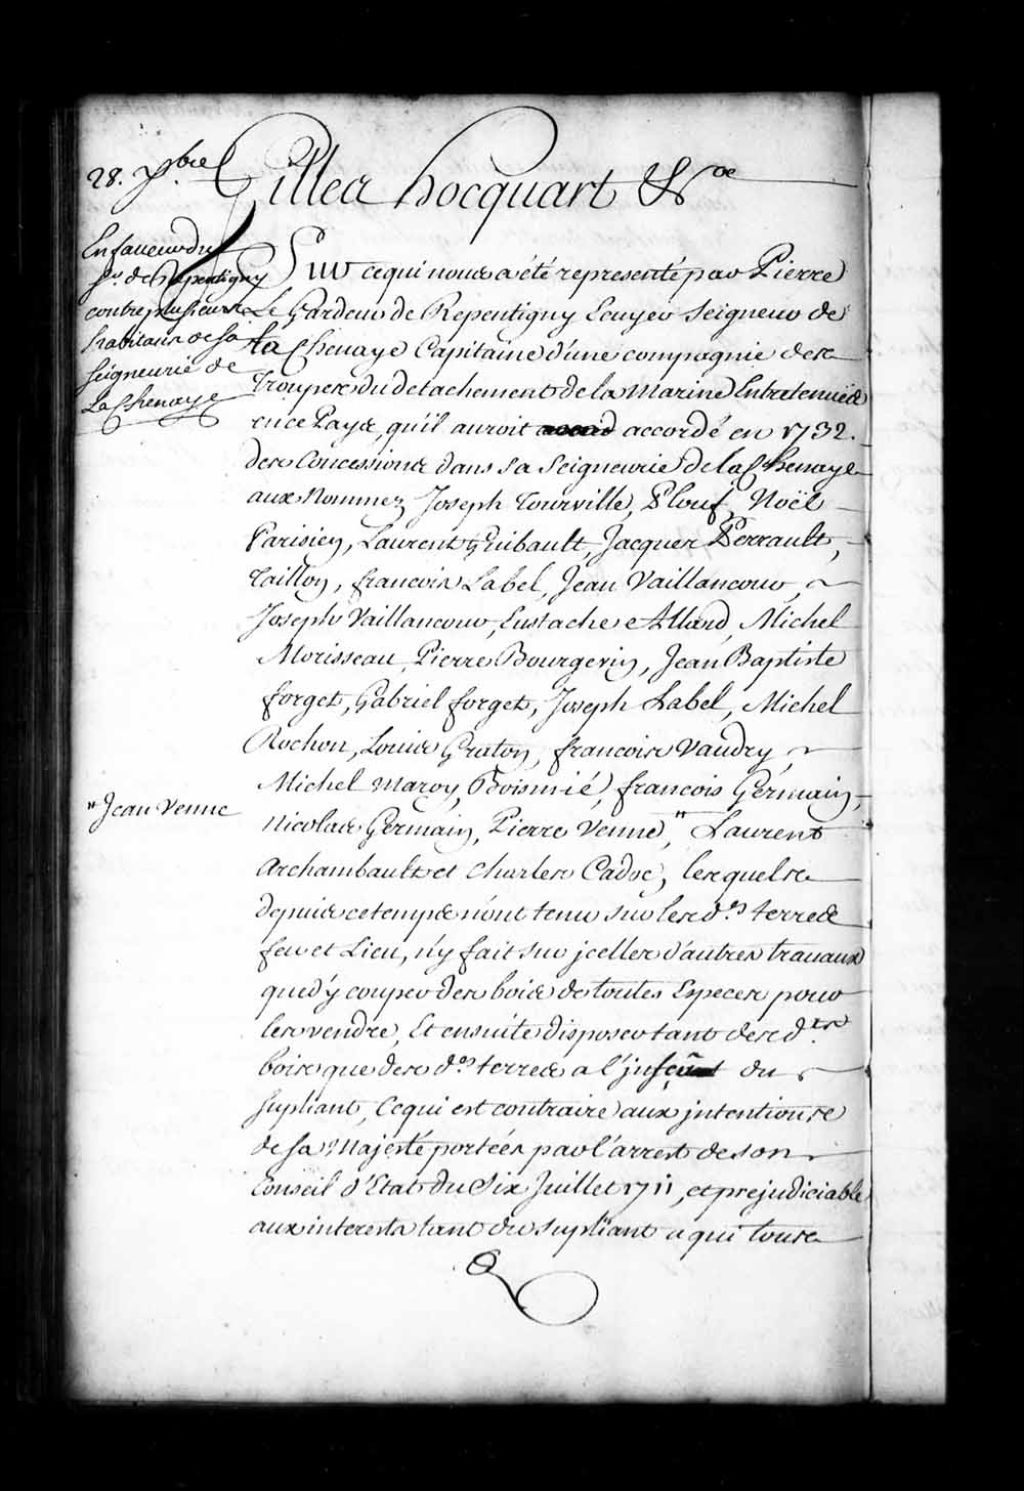 28. 7.bre
Gilles hocquart &c.
En faveur du
Sr. de Repentigny
contre plusieurs
habitans de sa
Seigneurie de
La Chenaye
Sur ce qui nous a été representé par Pierre
Le Gardeur de Repentigny Ecuyer Seigneur de
La Chenaye Capitaine d'une compagnie des
Troupes du detachement de la Marine Entretenües
en ce Pays, qu'il auroit accordé en 1732.
des Concessions dans sa Seigneurie de la Chenaye
aux nommez Joseph Tourville, Plouf, Noël
Parisien, Laurent Guibault, Jacques Perrault,
Taillon, francois Label, Jean Vaillancour,
Joseph Vaillancour, Eustache Allard, Michel
Morisseau, Pierre Bourgery, Jean Baptiste
forget, Gabriel forget, Joseph Label, Michel
Rochon, Louis Graton, francois Vaudry,
Michel Maroy, Boismié, francois Germain,
"Jean Venne
Nicolas Germain, Pierre Venne," Laurent
Archambault et Charles Cadoc, lesquels
depuis ce temps n'ont tenu sur les d.es terres
feu et Lieu, n'y fait sur jcelles d'autres travaux
que d'y couper des bois de toutes Especes pour
les vendre, Et ensuite disposer tant des d.ts
bois que des d.es terres a l'jnsçû du
supliant, Ce qui est contraire aux jntentions
de sa Majesté portées par l'arrest de son
Conseil d'Etat du Six Juillet 1711, et prejudiciable
aux interests tant du supliant a qui tous